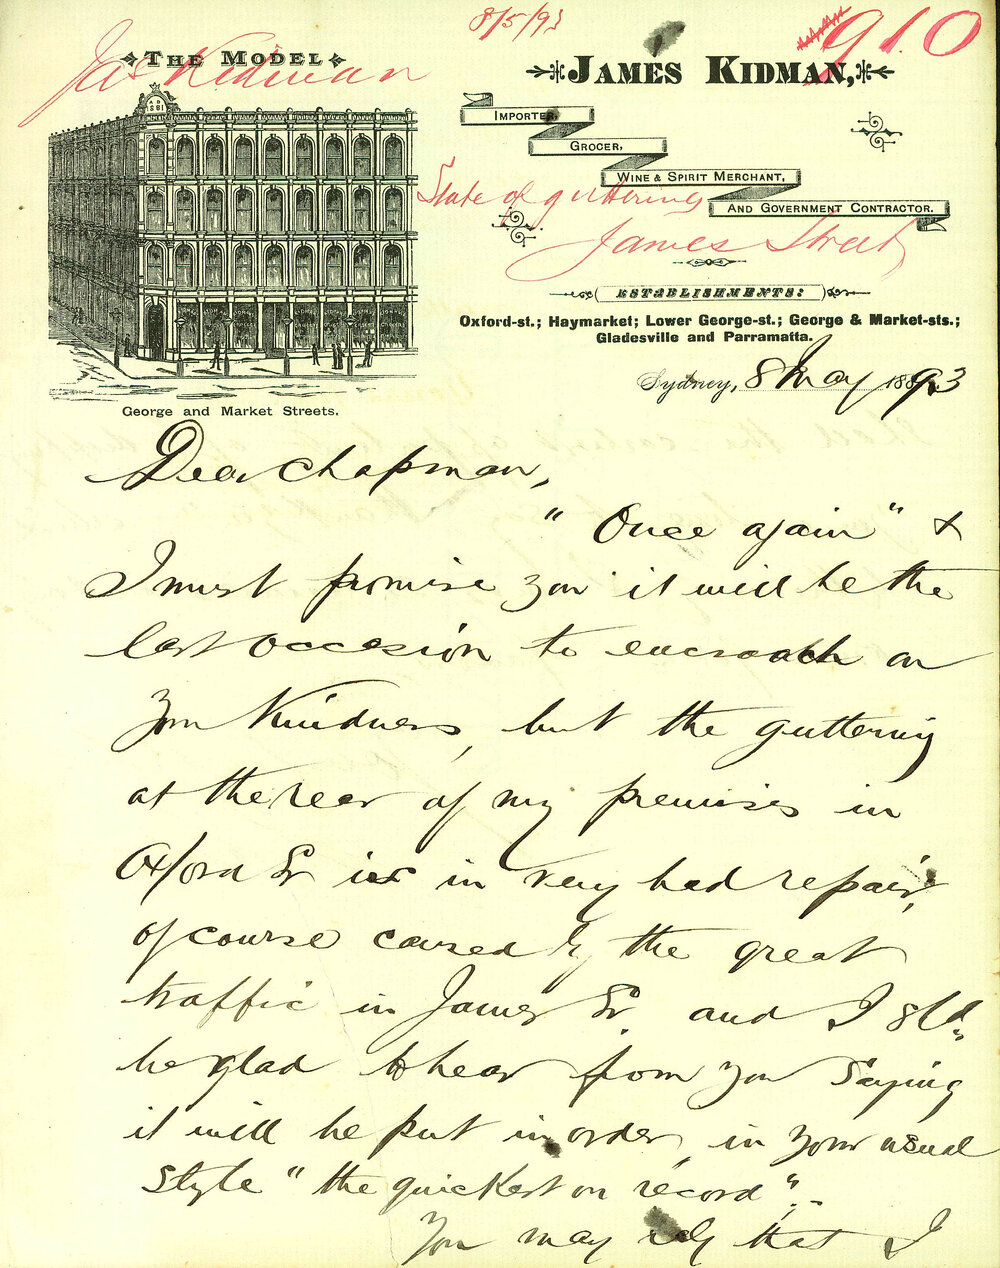 8/5/93
910
Jas Kidman
THE MODEL
A D
1881
George and Market Streets.
JAMES KIDMAN,
IMPORTER,
GROCER,
WINE & SPIRIT MERCHANT,
AND GOVERNMENT CONTRACTOR.
State of guttering
James Street
ESTABLISHMENTS:
Oxford-st.; Haymarket; Lower George-st.; George & Market-sts.;
Gladesville and Parramatta.
Sydney, 8 May 1893
Dear Chapman,
"Once again" &
I must promise you it will be the
last occasion to encroach on
your Kindness, but the guttering
at the rear of my premises in
Oxford St is in very bad repair,
of course caused by the great
traffic in James St. and I shld
be glad to hear from you saying
it will be put in order, in your usual
style "the quickest on record".
You may rely that I